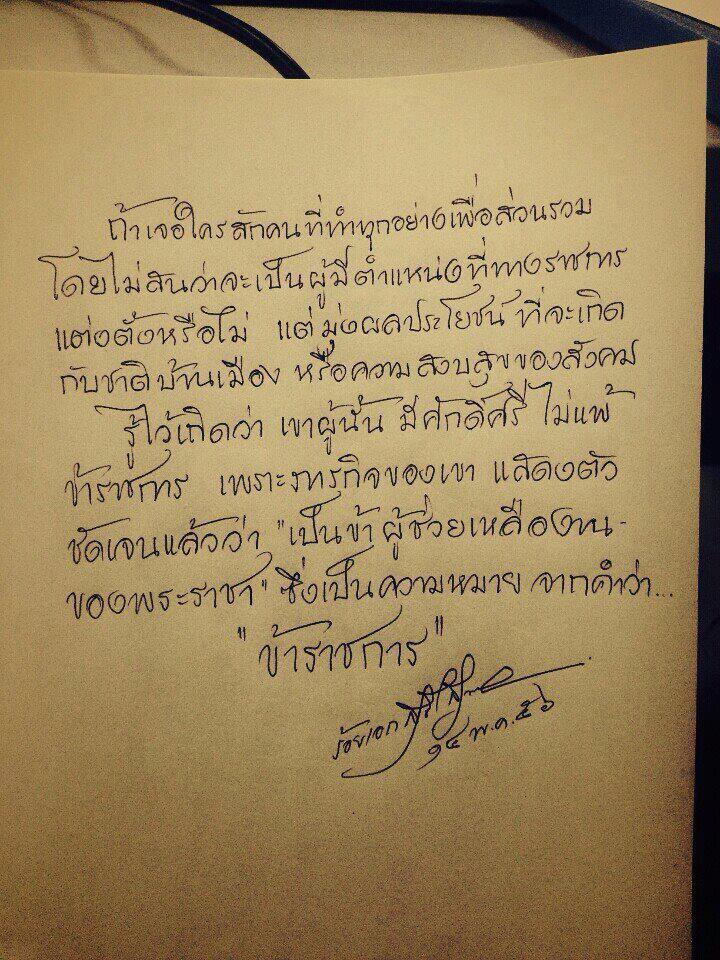 ถ้าเจอใครสักคนที่ทำทุกอย่างเพื่อส่วนรวม
โดยไม่สนว่าจะเป็นผู้มีตำแหน่งที่ทางราชการ
แต่งตั้งหรือไม่ แต่มุ่งผลประโยชน์ที่จะเกิด
กับชาติบ้านเมือง หรือความสงบสุขของสังคม
รู้ไว้เถิดว่า เขาผู้นั้น มีศักดิ์ศรี ไม่แพ้
ข้าราชการ เพราะภารกิจของเขา แสดงตัว
ชัดเจนแล้วว่า "เป็นข้า ผู้ช่วยเหลืองาน-
ของพระราชา" ซึ่งเป็นความหมาย จากคำว่า...
"ข้าราชการ"
ร้อยเอก
๑๔ พ.ค. ๕๖